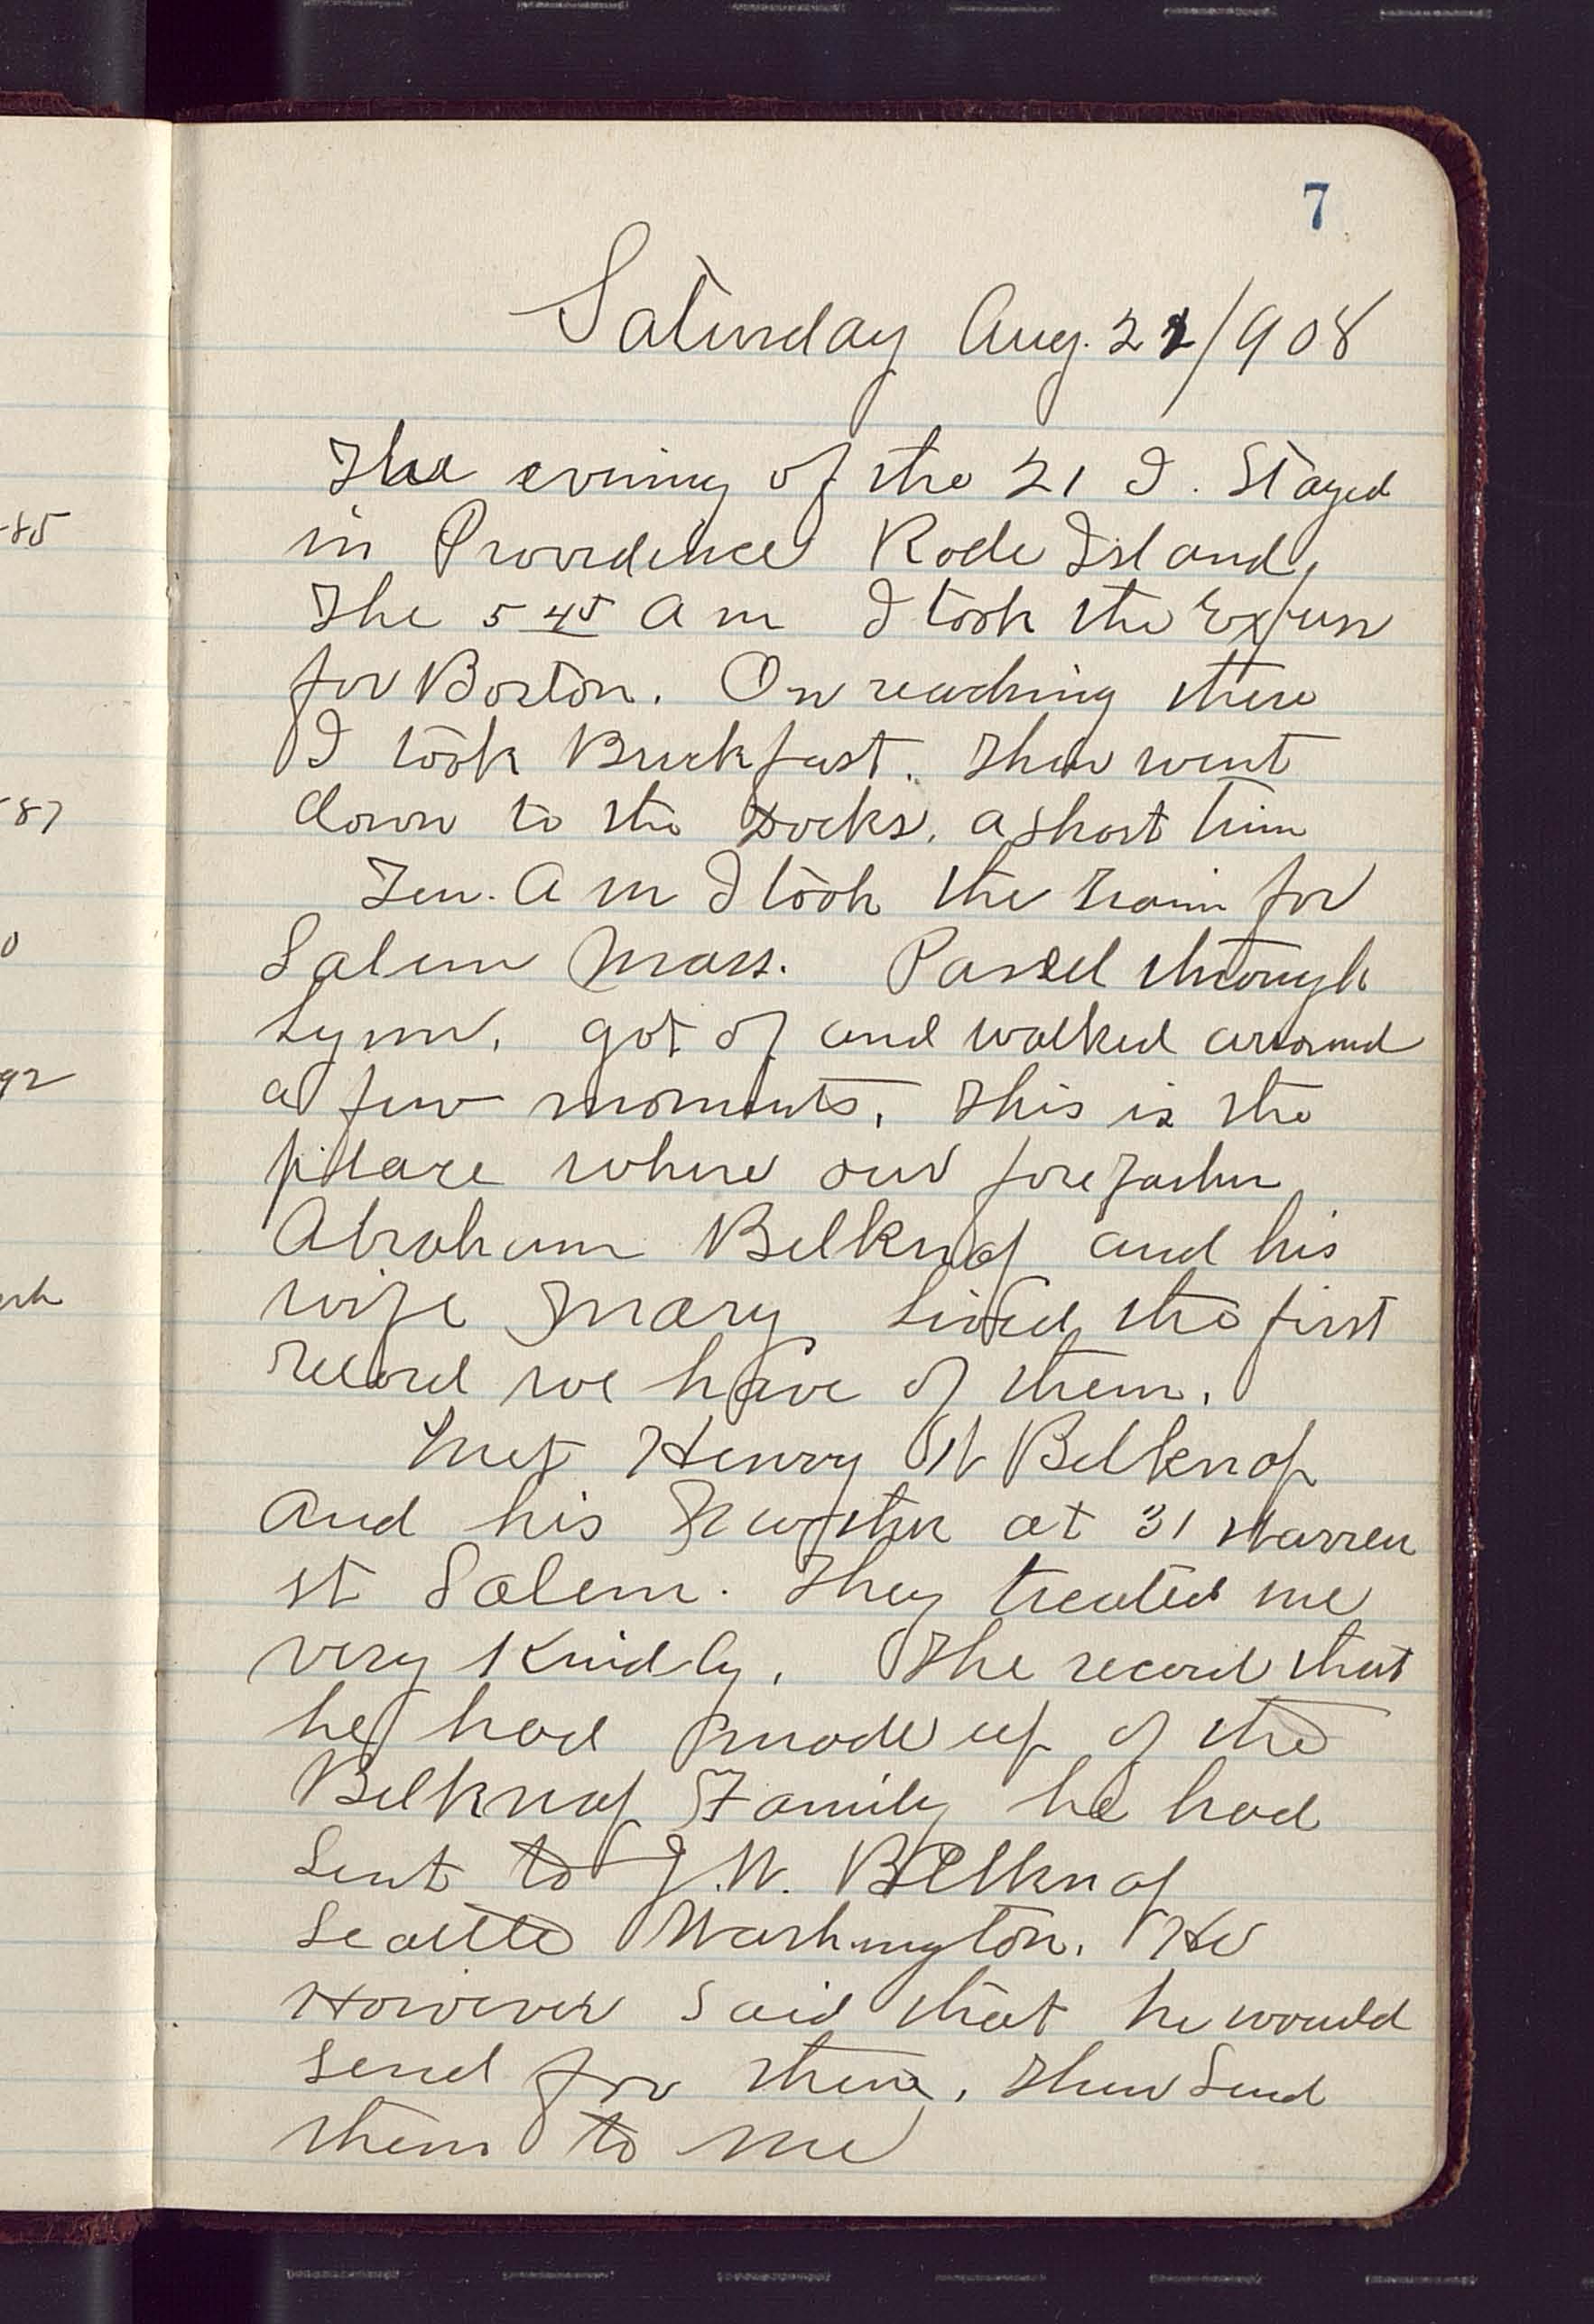 7
Saturday Aug. 22/908
The evening of the 21 I. Stayed
in Providence Rode Island,
The 5 45 A m I took the Express
for Boston. On reaching there
I took Breckfast. Then went
down to the Docks. a short time
Ten. A m I took the train for
Salem Mass. Passed through
Lynn, got of and walked around
a few moments. This is the
place where our forefather
Abraham Belknap and his
wife Mary Lived, the first
record we have of them.
Met Henry W Belknap
and his at 31 Warren
st Salem. They treated me
very Kindly. The record that
he had made up of the
Belknap Family he had
Sent to J. W. Belknap
Seattle Washington. He
However said that he would
send for them, then Send
them to me
-85
87
0
92